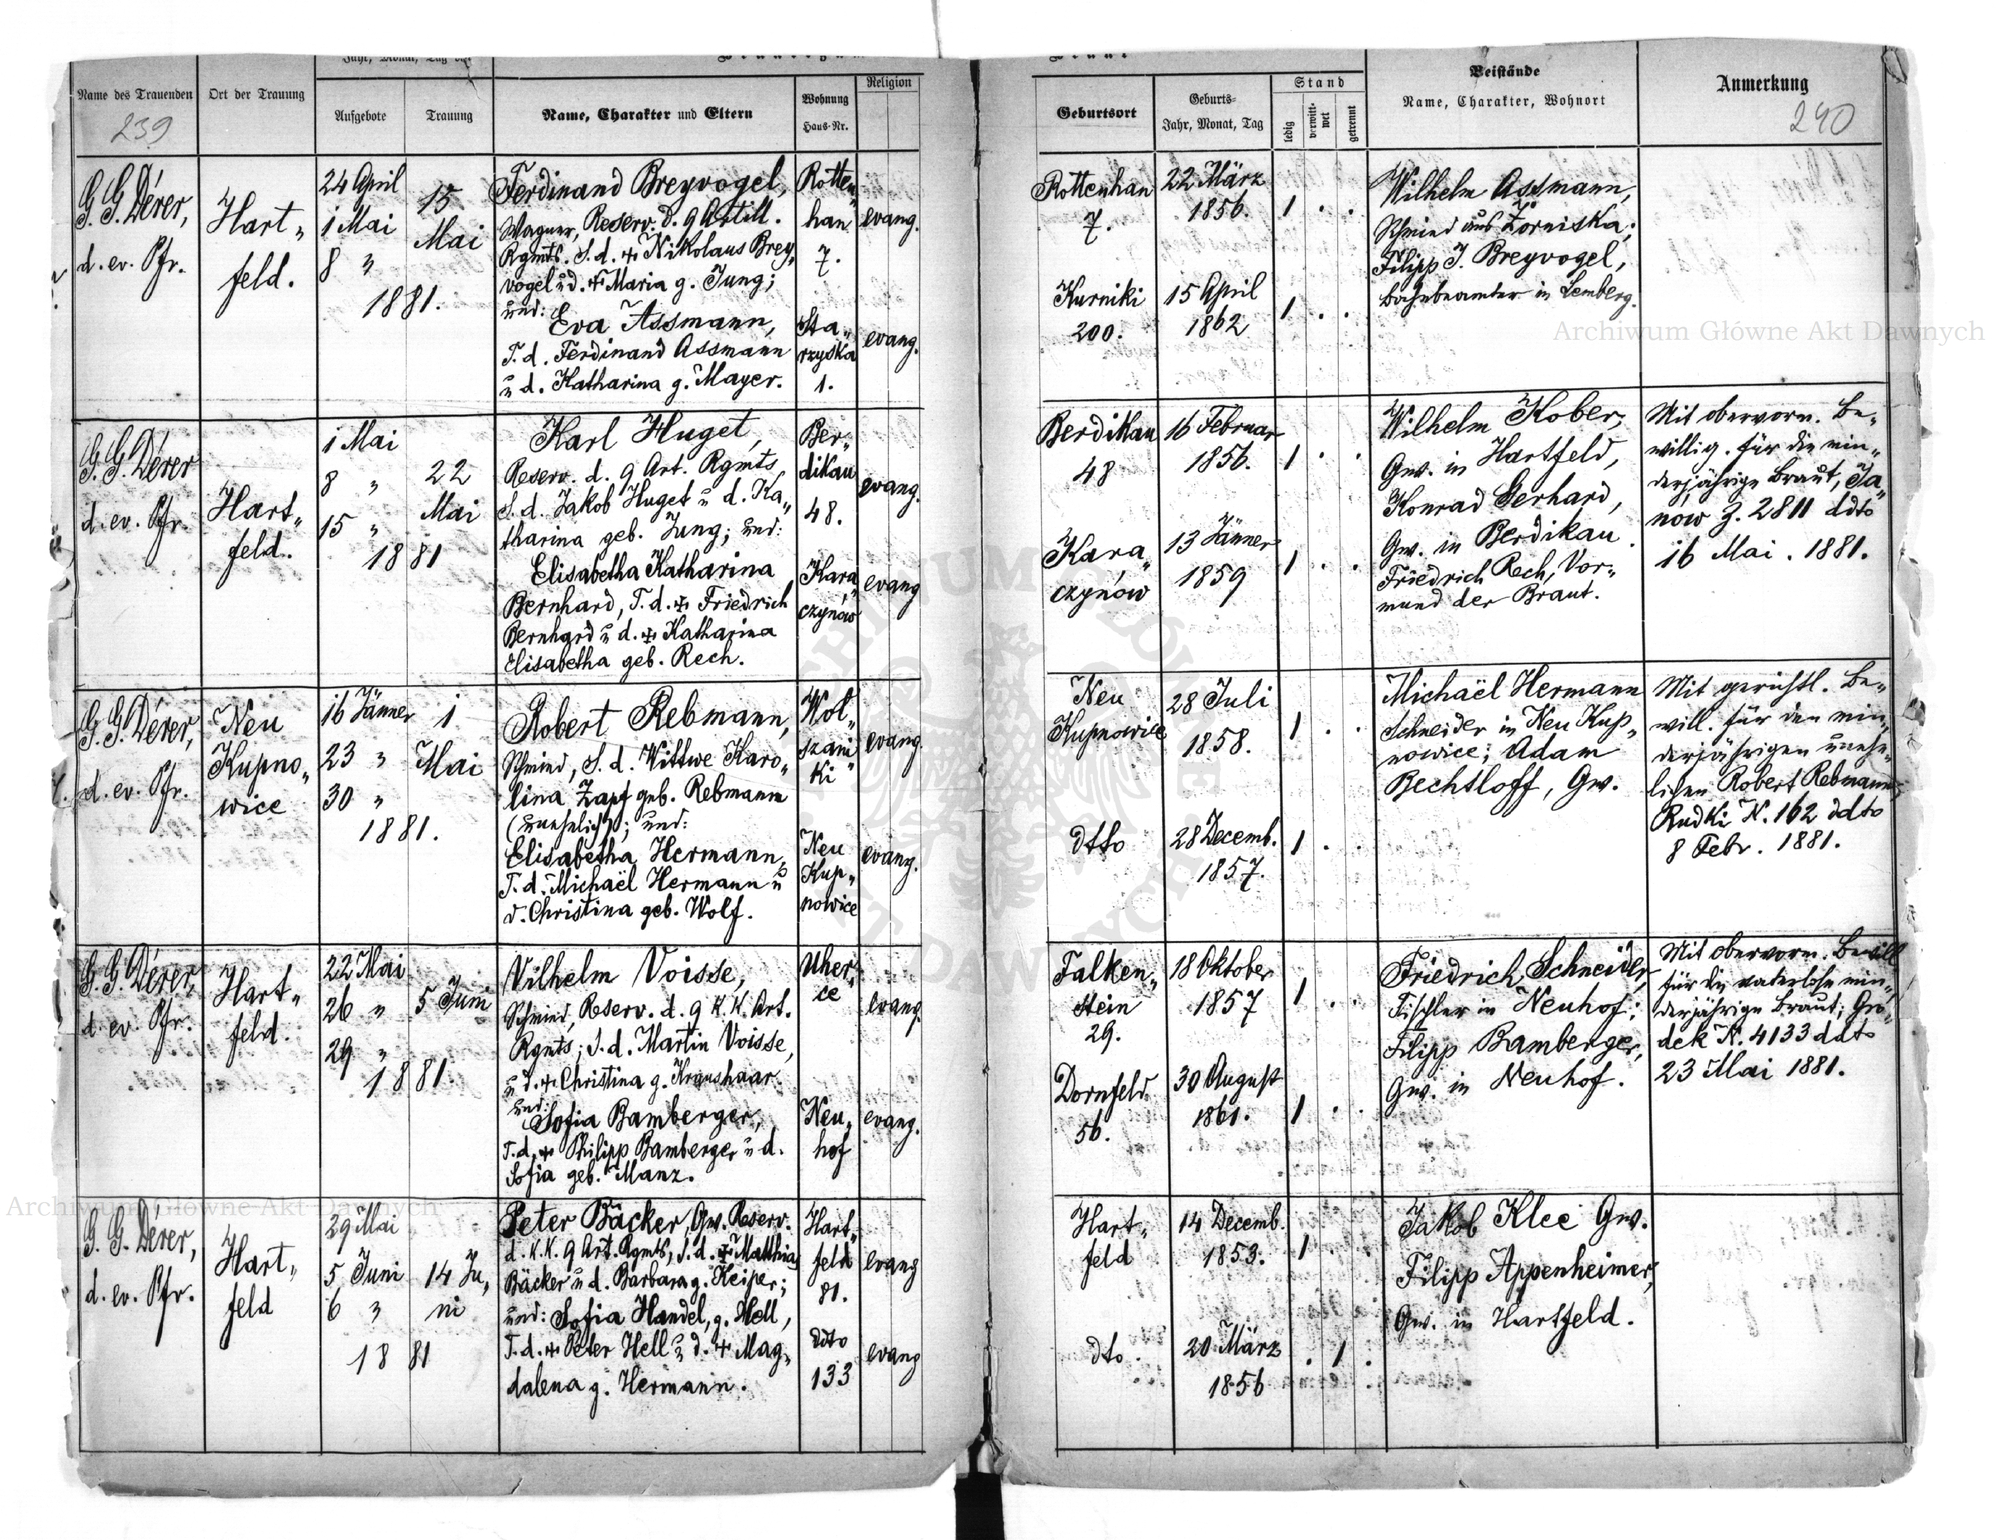 Name des Trauenden
239
Ort der Trauung
Jahr, Monat, Tag der
Aufgebote
Trauung
Name, Charakter und Eltern
Wohnung
Haus-Nr.
Religion
G. G. Dérer,
d. ev. Pfr.
Hart„
feld.
24 April
1 Mai
8 „
15
Mai
1881.
Ferdinand Breyvogel,
Wagner, Reserv. d. 9 Artill.
Rgmts. S. d. + Nikolaus Brey„
vogel u d. + Maria g. Jung;
und:
Eva Assmann,
T. d. Ferdinand Assmann
u d. Katharina g. Mayer.
Rotten„
han
7.
Sta„
rzyska
1.
evang.
evang.
G. G. Dérer
d. ev. Pfr.
Hart„
feld.
1 Mai
8 „
15 „
22
Mai
1881
Karl Huget,
Reserv. d. 9 Art. Rgmts,
S. d. Jakob Huget u d. Ka„
tharina geb. Jung; und:
Elisabetha Katharina
Bernhard, T. d. + Friedrich
Bernhard u d. + Katharina
Elisabetha geb. Rech.
Ber„
dikau
48.
Kara„
czynów
evang.
evang
G. G. Dérer,
d. ev. Pfr.
Neu
Kupno„
wice
16 Jänner
23 „
30 „
1
Mai
1881.
Robert Rebmann,
Schmied, S. d. Wittwe Karo„
lina Zapf geb. Rebmann
(unehelich); und:
Elisabetha Hermann,
T. d. Michaël Hermann u
d. Christina geb. Wolf.
Wol„
szani„
ki
Neu
Kup„
nowice
evang.
evang.
G. G. Dérer,
d. ev. Pfr.
Hart„
feld.
22 Mai
26 „
29 „
5 Juni
1881.
Vilhelm Voisse,
Schmied, Reserv. d. 9 K. K. Art.
Rgmts; S. d. Martin Voisse,
u d. + Christina g. Kraushaar.
und:
Sofia Bamberger,
T. d. + Philipp Bamberger u d.
Sofia geb. Manz.
Uher„
ce
Neu„
hof
evang.
evang.
G. G. Dérer,
d. ev. Pfr.
Hart„
feld
29 Mai
5 Juni
6 „
14 Ju„
ni
1881
Peter Bäcker, Gw. Reserv.
d. K. K. 9 Art. Rgmts, S. d. + Matthias
Bäcker u d. Barbara g. Keiper;
und: Sofia Handel, g. Hell,
T. d. + Peter Hell u d. + Mag„
dalena g. Hermann.
Hart„
feld
81.
ddto
133
evang
evang
Geburtsort
Geburts-
Jahr, Monat, Tag
Stand
ledig
verwittwet
getrennt
Beistände
Name, Charakter, Wohnort
Anmerkung
240
Rottenhan
7.
22 März
1856.
1 . .
Kurniki
200.
15 April
1862
1 . .
Wilhelm Assmann,
Schmied aus Zorniska;
Filipp J. Breyvogel,
Bahnbeamter in Lemberg.
Berdikau
48
16 Februar
1856.
1 . .
Kara„
czynów
13 Jänner
1859
1 . .
Wilhelm Kober,
Gw. in Hartfeld,
Konrad Gerhard,
Gw. in Berdikau.
Friedrich Rech, Vor„
mund der Braut.
Mit obervorm. Be„
willig. für die min„
derjährige Braut, Ja„
now Z. 2811 ddto
16 Mai. 1881.
Neu
Kupnowice
28 Juli
1858.
1 . .
dtto
28 Decemb.
1857.
1 . .
Michaël Hermann
Schneider in Neu Kup„
nowice; Adam
Bechtloff, Gw.
Mit gerichtl. Be„
will. für den min„
derjährigen unehe„
lichen Robert Rebmann,
Rudki N. 162 ddto
8 Febr. 1881.
Falken„
stein
29.
18 Oktober
1857
1 . .
Dornfeld
56.
30 August
1861.
1 . .
Friedrich Schneider,
Tischler in Neuhof;
Filipp Bamberger,
Gw. in Neuhof.
Mit obervorm. Bewill
für die vaterlose min„
derjährige Braut; Gro„
dek N. 4133 ddto
23 Mai 1881.
Hart„
feld
14 Decemb.
1853.
1 . .
dto.
20 März
1856
. 1 .
Jakob Klee Gw.
Filipp Appenheimer,
Gw. in Hartfeld.
Archiwum Główne Akt Dawnych
Archiwum Główne Akt Dawnych
ARCHIWUM GŁÓWNE AKT DAWNYCH